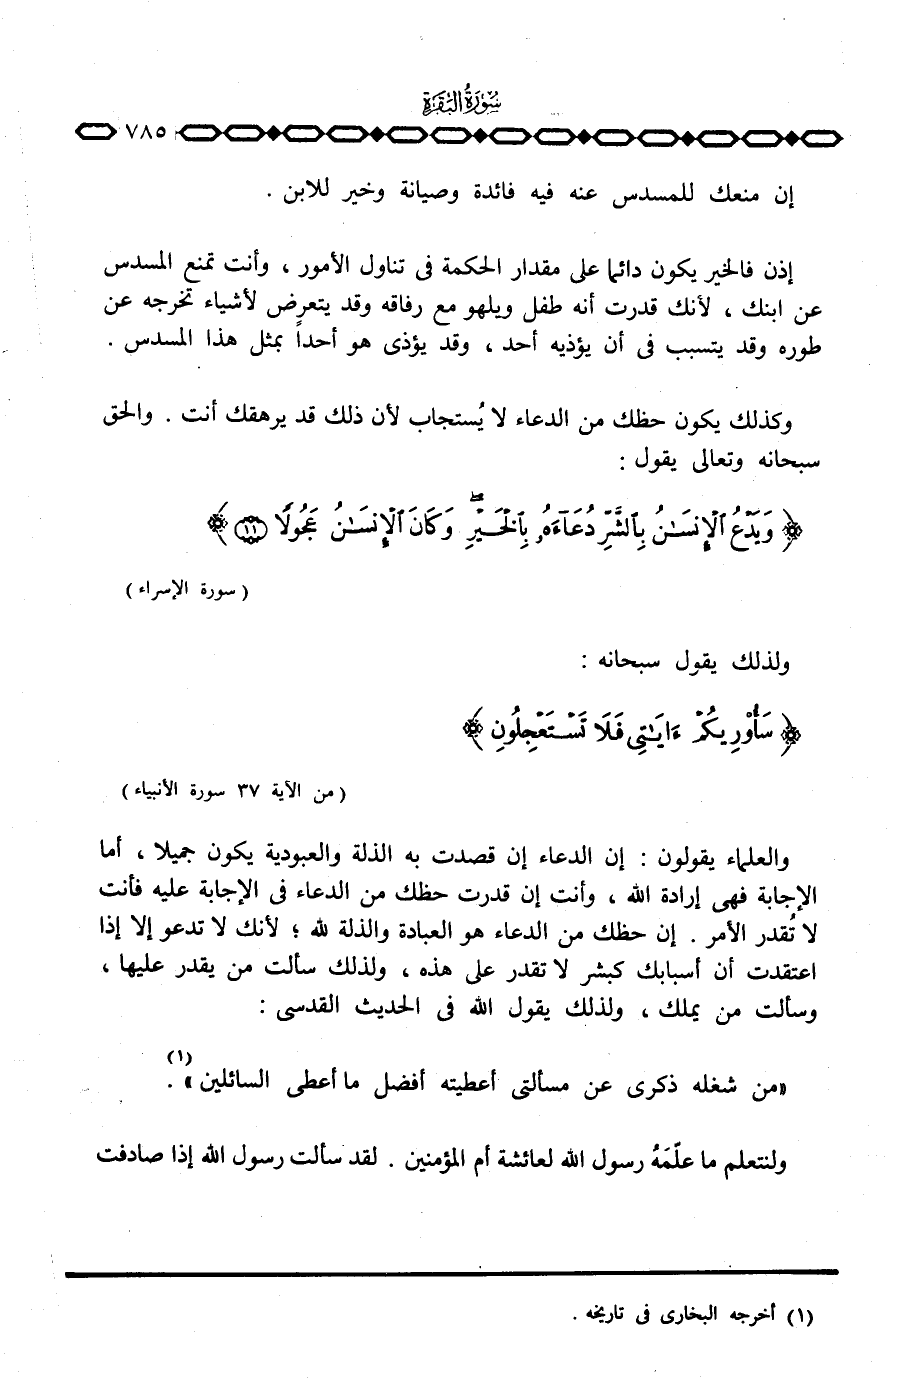 سُورَةُ البَقَرَةِ
٧٨٥
إن منعك للمسدس عنه فيه فائدة وصيانة وخير للابن .
إذن فالخير يكون دائما على مقدار الحكمة فى تناول الأمور ، وأنت تمنع المسدس
عن ابنك ، لأنك قدرت أنه طفل ويلهو مع رفاقه وقد يتعرض لأشياء تخرجه عن
طوره وقد يتسبب فى أن يؤذيه أحد ، وقد يؤذى هو أحداً بمثل هذا المسدس .
وكذلك يكون حظك من الدعاء لا يُستجاب لأن ذلك قد يرهقك أنت . والحق
سبحانه وتعالى يقول :
﴿ وَيَدْعُ ٱلْإِنسَـٰنُ بِٱلشَّرِّ دُعَآءَهُۥ بِٱلْخَيْرِ ۖ وَكَانَ ٱلْإِنسَـٰنُ عَجُولًا ١١ ﴾
( سورة الإسراء )
ولذلك يقول سبحانه :
﴿ سَأُوْرِيكُمْ ءَايَـٰتِى فَلَا تَسْتَعْجِلُونِ ﴾
( من الآية ٣٧ سورة الأنبياء )
والعلماء يقولون : إن الدعاء إن قصدت به الذلة والعبودية يكون جميلا ، أما
الإجابة فهى إرادة الله ، وأنت إن قدرت حظك من الدعاء فى الإجابة عليه فأنت
لا تُقدر الأمر . إن حظك من الدعاء هو العبادة والذلة لله ؛ لأنك لا تدعو إلا إذا
اعتقدت أن أسبابك كبشر لا تقدر على هذه ، ولذلك سألت من يقدر عليها ،
وسألت من يملك ، ولذلك يقول الله فى الحديث القدسى :
«من شغله ذكرى عن مسألتى أعطيته أفضل ما أعطى السائلين» (١) .
ولنتعلم ما علّمَهُ رسول الله لعائشة أم المؤمنين . لقد سألت رسول الله إذا صادفت
(١) أخرجه البخارى فى تاريخه .